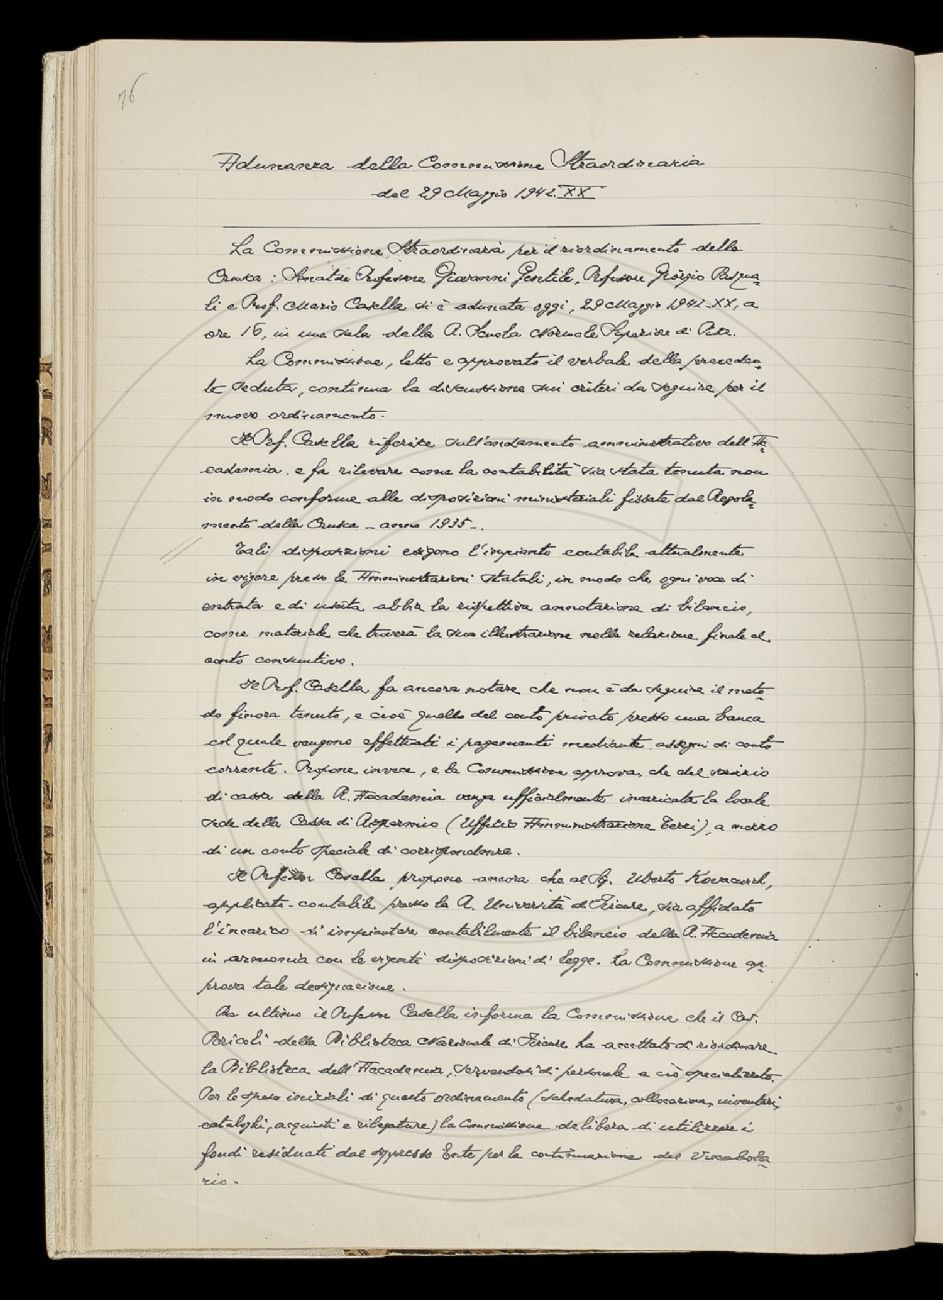 76
Adunanza della Commissione Straordinaria
del 29 Maggio 1942.XX
La Commissione Straordinaria per il riordinamento della
Crusca: Senatore Professore Giovanni Gentile, Professore Giorgio Pasqua-
li e Prof. Mario Casella si è adunata oggi, 29 Maggio 1942-XX, a
ore 16, in una sala della R. Scuola Normale Superiore di Pisa.
La Commissione, letto e approvato il verbale della preceden-
te seduta, continua la discussione sui criteri da seguire per il
nuovo ordinamento.
Il Prof. Casella riferisce sull'andamento amministrativo dell'Ac-
cademia e fa rilevare come la contabilità sia stata tenuta non
in modo conforme alle disposizioni ministeriali fissate dal Regola-
mento della Crusca - anno 1935-.
Tali disposizioni esigono l'impianto contabile attualmente
in vigore presso le Amministrazioni Statali, in modo che ogni voce di
entrata e di uscita abbia la rispettiva annotazione di bilancio,
come materiale che troverà la sua illustrazione nella relazione finale al
conto consuntivo.
Il Prof. Casella fa ancora notare che non è da seguire il meto-
do finora tenuto, e cioè quello del conto privato presso una banca
col quale vengono effettuati i pagamenti mediante assegni di conto
corrente. Propone invece, e la Commissione approva, che del servizio
di cassa della R. Accademia venga ufficialmente incaricata la locale
sede della Cassa di Risparmio (Ufficio Amministrazione Terzi), a mezzo
di un conto speciale di corrispondenza.
Il Professor Casella propone ancora che al Sig. Uberto Kovacevich,
applicato-contabile presso la R. Università di Firenze, sia affidato
l'incarico di impiantare contabilmente il bilancio della R. Accademia
in armonia con le vigenti disposizioni di legge. La Commissione ap-
prova tale designazione.
Da ultimo il Professor Casella informa la Commissione che il Cav.
Boricoli della Biblioteca Nazionale di Firenze ha accettato di riordinare
la Biblioteca dell'Accademia, servendosi di personale a ciò specializzato.
Per le spese iniziali di questo ordinamento (schedatura, collocazione, inventari,
cataloghi, acquisti e rilegature) la Commissione delibera di utilizzare i
fondi residuati dal soppresso Ente per la continuazione del Vocabola-
rio.